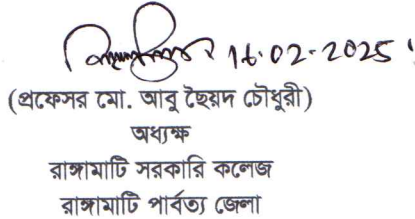 16.02.2025
(প্রফেসর মো. আবু ছৈয়দ চৌধুরী)
অধ্যক্ষ
রাঙ্গামাটি সরকারি কলেজ
রাঙ্গামাটি পার্বত্য জেলা